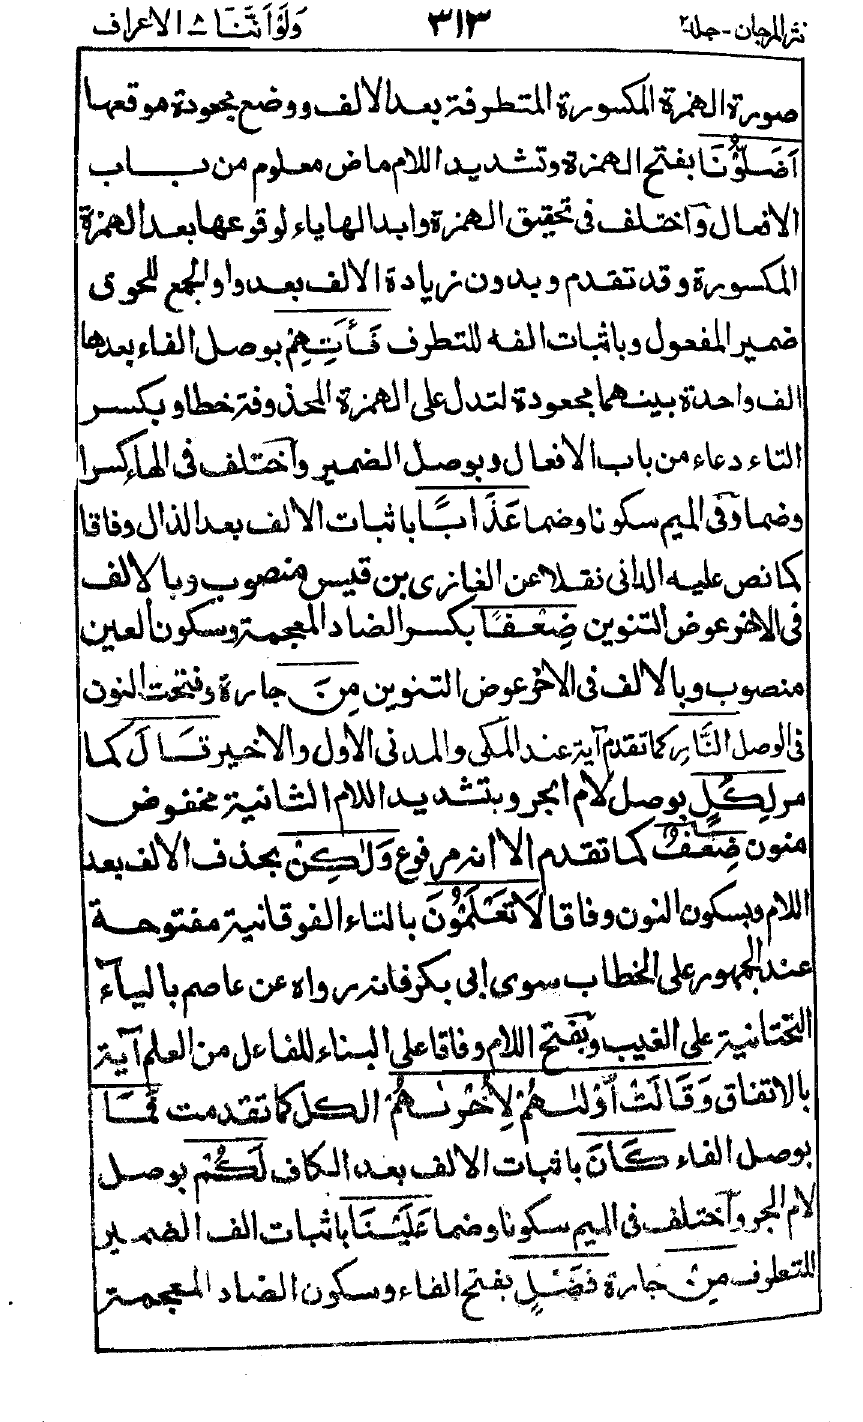 نثر المرجان - جلد ٢ ٣١٣ وَلَوْ أَنَّنَا ٨ الاعراف
صورة الهمزة المكسورة المتطرفة بعد الالف ووضع مجعودة موقعها
اَضَلُّوْنَا بفتح الهمزة وتشديد اللام ماض معلوم من باب
الافعال وَاختلف فى تحقيق الهمزة وابدالها ياء لوقوعها بعد الهمزة
المكسورة وقد تقدم وبدون زيادة الالف بعد واو الجمع للحوى
ضمير المفعول وباثبات الفه للتطرف فَـأْتِهِمْ بوصل الفاء بعدها
الف واحدة بينهما مجعودة لتدل على الهمزة المحذوفة خطا وبكسر
التاء دعاء من باب الافعال وبوصل الضمير وَاختلف فى الهاء كسرا
وضما وَفى الميم سكونا وضما عَذَابًا باثبات الالف بعد الذال وفاقا
كما نص عليه الدانى نقلا عن الغازى بن قيس منصوب وبالالف
فى الاخر عوض التنوين ضِعْفًا بكسر الضاد المعجمة وسكون العين
منصوب وبالالف فى الاخر عوض التنوين مِنَ جارة وفتحت النون
فى الوصل النَّارِ كما تقدم آية عند المكى والمدنى الاول والاخير قَالَ كما
مر لِكُلٍّ بوصل لام الجر وبتشديد اللام الثانية مخفوض
منون ضِعْفٌ كما تقدم الا انه مرفوع وَلٰكِنْ بحذف الالف بعد
اللام وبسكون النون وفاقا لَا تَعْلَمُوْنَ بالتاء الفوقانية مفتوحة
عند الجمهور على الخطاب سوى ابى بكر فانه رواه عن عاصم بالياء
التحتانية على الغيب وبفتح اللام وفاقا على البناء للفاعل من العلم آية
بالاتفاق وَقَالَتْ اُوْلٰىهُمْ لِاُخْرٰىهُمْ الكل كما تقدمت فَمَا
بوصل الفاء كَانَ باثبات الالف بعد الكاف لَكُمْ بوصل
لام الجر وَاختلف فى الميم سكونا وضما عَلَيْنَا باثبات الف الضمير
المتطرف مِنْ جارة فَضْلٍ بفتح الفاء وسكون الضاد المعجمة